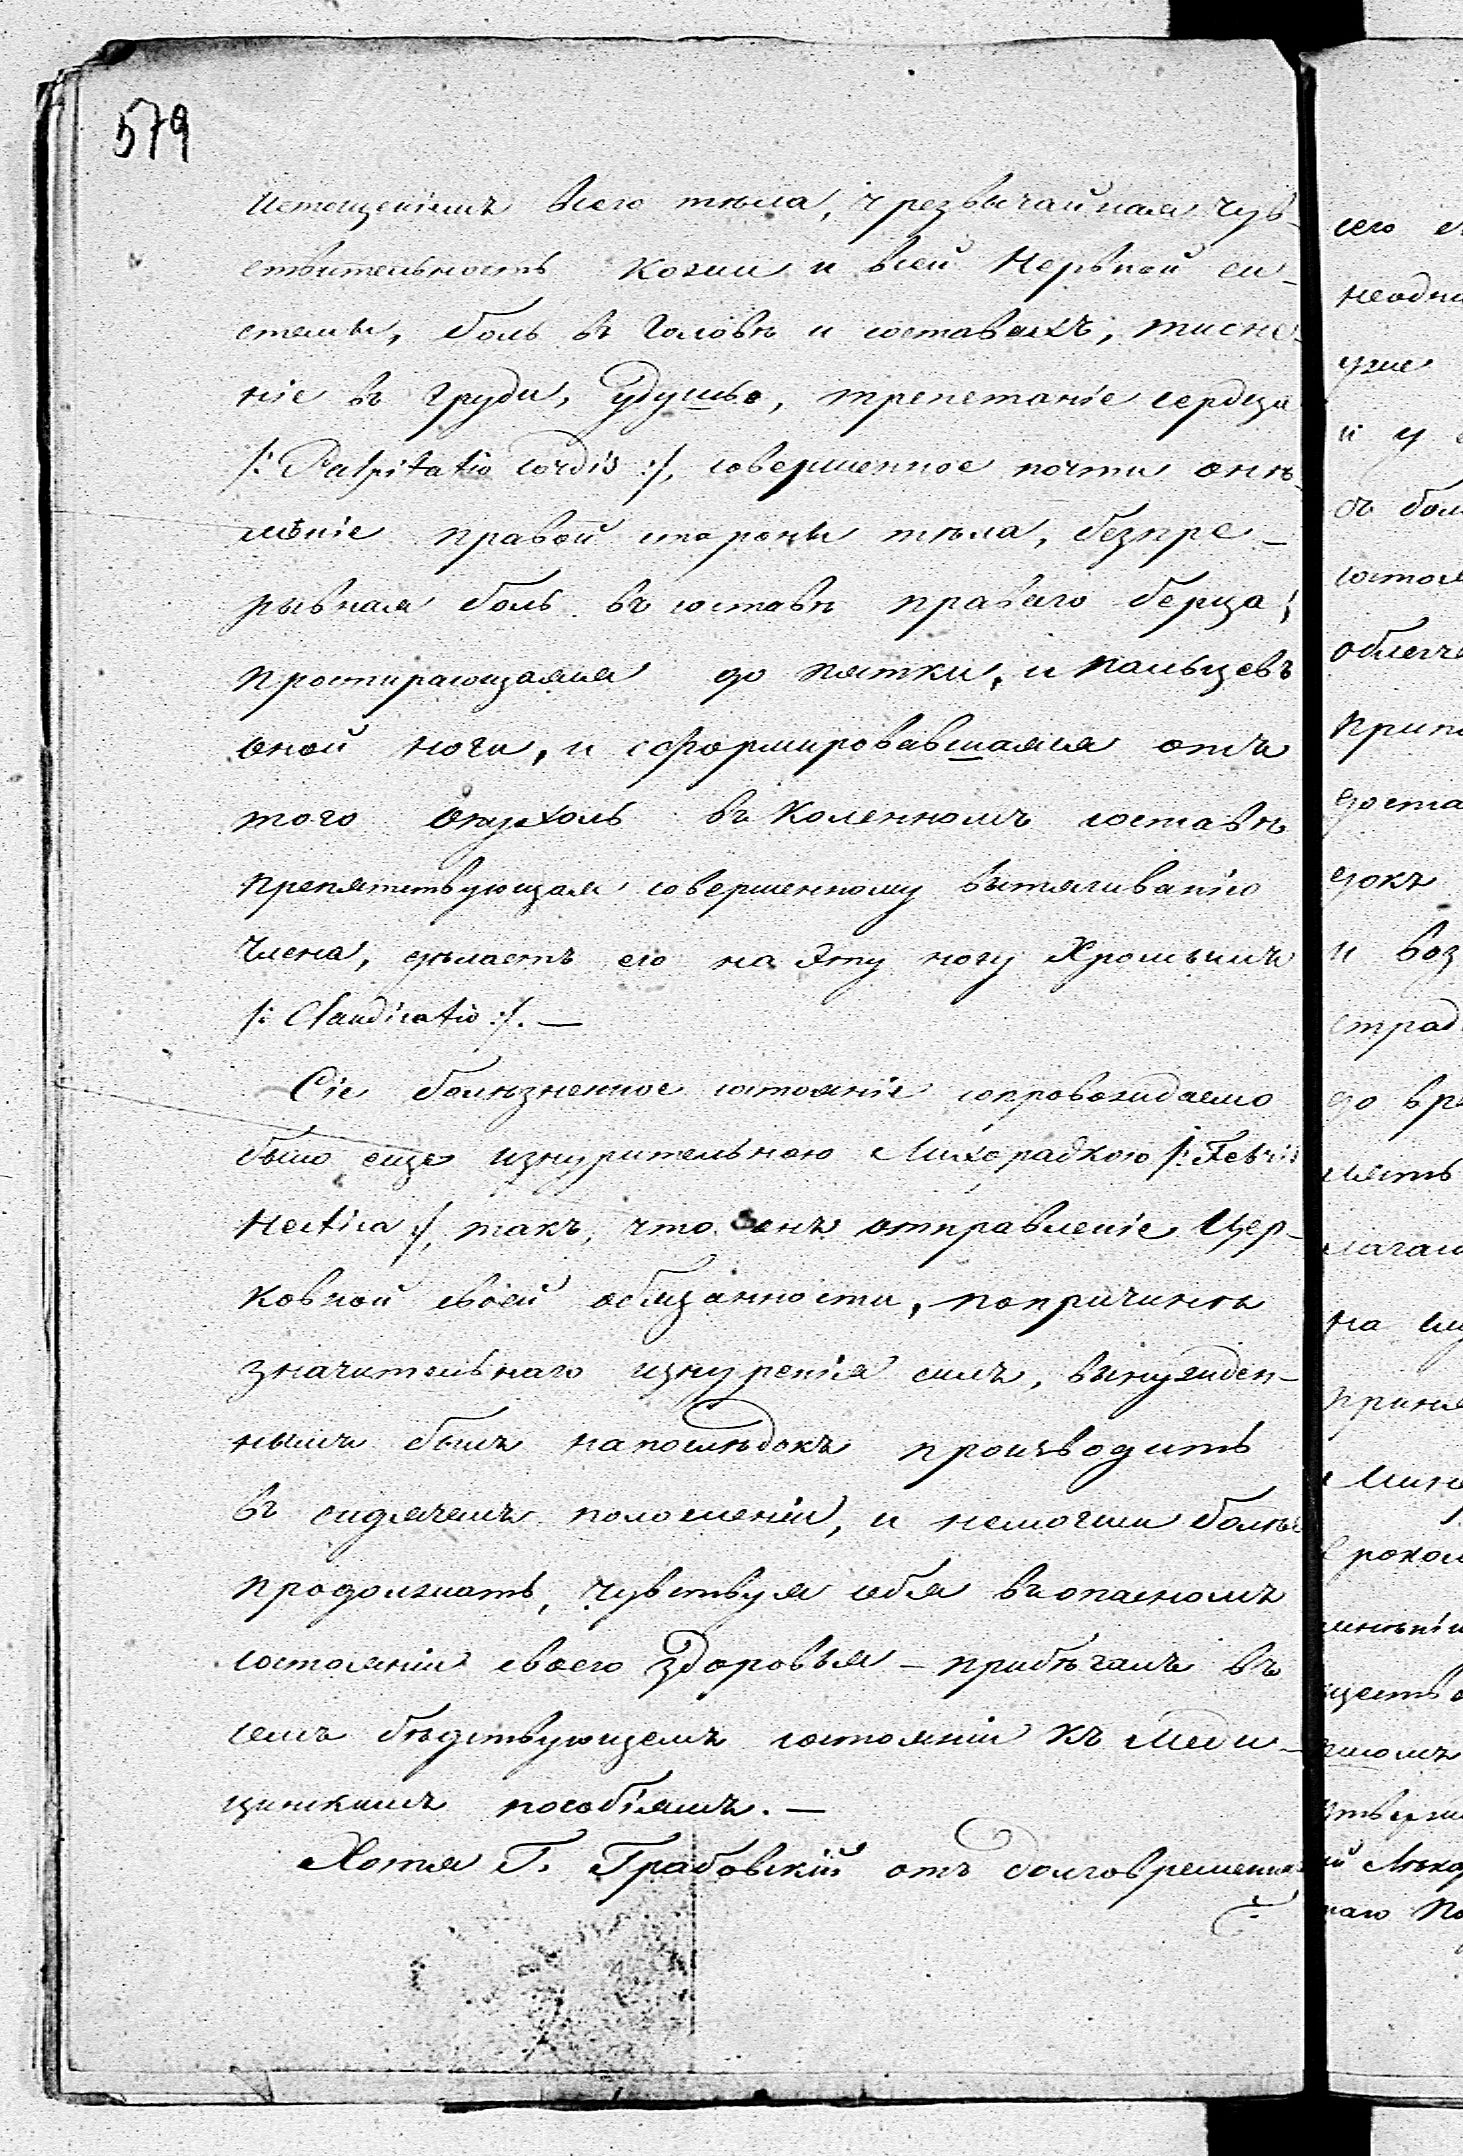 579
истощеніемъ всего тѣла, чрезвычайная чув-
ствительность кожи и всей Нервной си-
стемы, боль въ Головѣ и составахъ, тисне-
ніе въ груди, удушье, трепетаніе сердца
/: Palpitatio Cordis :/, совершенное почти онѣ-
мѣніе правой стороны тѣла, безпре-
рывная боль въ составѣ праваго берца,
простирающаяся до пятки, и пальцевъ
оной ноги, и сформировавшаяся отъ
того опухоль въ коленномъ составѣ
препятствующая совершенному вытягиванію
члена, дѣлаетъ его на эту ногу Хромымъ
/: Claudicatio :/. —
Сіе болѣзненное состояніе сопровождаемо
было еще изнурительною Лихорадкою /: Febris
Hectica :/, такъ, что онъ отправленіе Цер-
ковной своей обязанности, попричинѣ
значительнаго изнуренія силъ, вынужден-
нымъ былъ напослѣдокъ производить
въ сидячемъ положеніи, и немогши болѣе
продолжать, чувствуя себя въ опасномъ
состояніи своего здоровья – прибѣгалъ въ
семъ бѣдствующемъ состояніи къ Меди-
цинскимъ пособіямъ. —
Хотя Г. Грабовскій отъ долговременна
сего
неодно
уже
и у
съ бол
состоя
облегче
прип
доста
докъ
и воз
страд
до вре
мять
лагаю
на
приня
Мин
мнѣніи
ществ
наго По